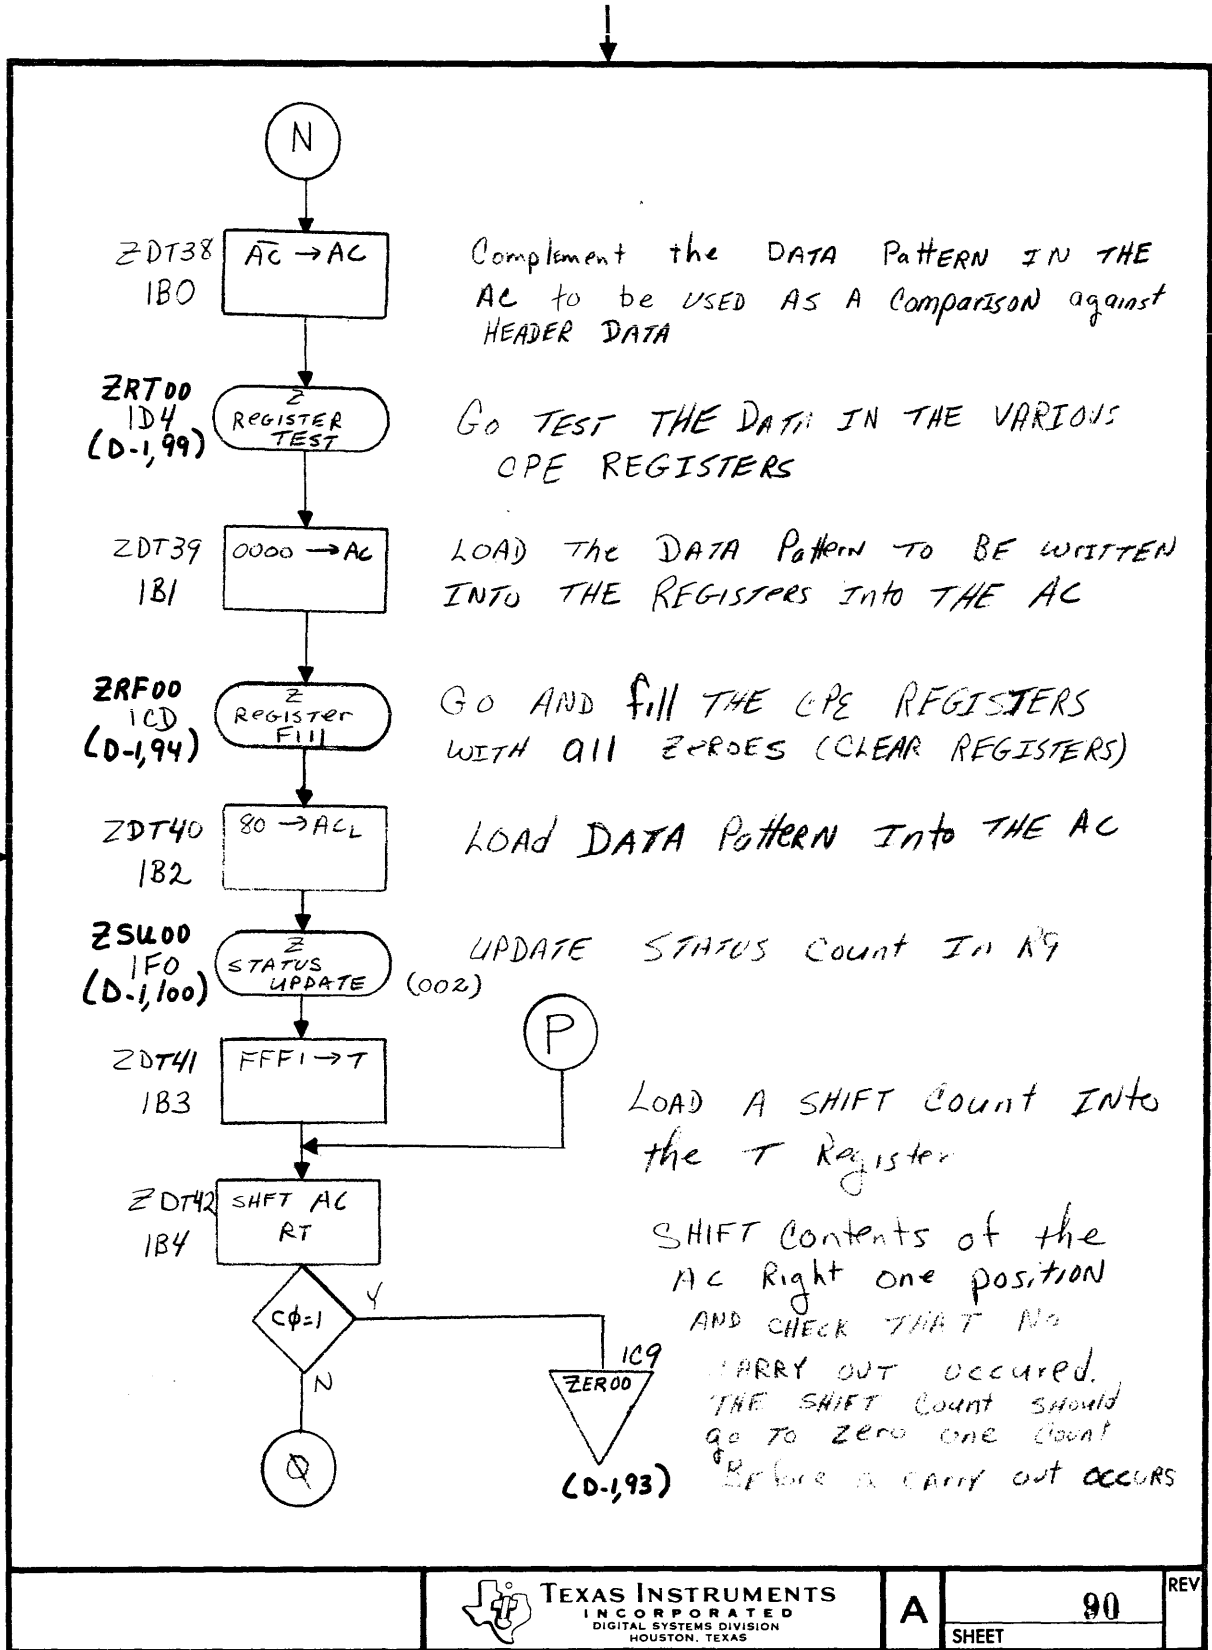 N
ZDT38
1B0
A̅C̅ → AC
Complement the DATA PattERN IN THE
AC to be USED AS A Comparison against
HEADER DATA
ZRT00
1D4
(D-1,99)
Z
REGISTER
TEST
Go TEST THE DATA IN THE VARIOUS
CPE REGISTERS
ZDT39
1B1
0000 → AC
LOAD The DATA Pattern TO BE WRITTEN
INTO THE REGISTERS Into THE AC
ZRF00
1CD
(D-1,94)
Z
Register
Fill
GO AND fill THE CPE REGISTERS
WITH all ZEROES (CLEAR REGISTERS)
ZDT40
1B2
80 → ACL
LOAd DATA PatteRN Into THE AC
ZSU00
1F0
(D-1,100)
Z
STATUS
UPDATE
(002)
UPDATE STATUS Count In R9
P
ZDT41
1B3
FFF1 → T
LOAD A SHIFT Count INto
the T Register
ZDT42
1B4
SHFT AC
RT
SHIFT Contents of the
AC Right one posiTION
AND CHECK THAT No
CARRY OUT occured.
THE SHIFT Count Should
go To Zero one Count
Before a cArry out OCCURS
Cϕ=1
Y
N
1C9
ZER00
(D-1,93)
Q
TEXAS INSTRUMENTS
INCORPORATED
DIGITAL SYSTEMS DIVISION
HOUSTON, TEXAS
A
90
SHEET
REV